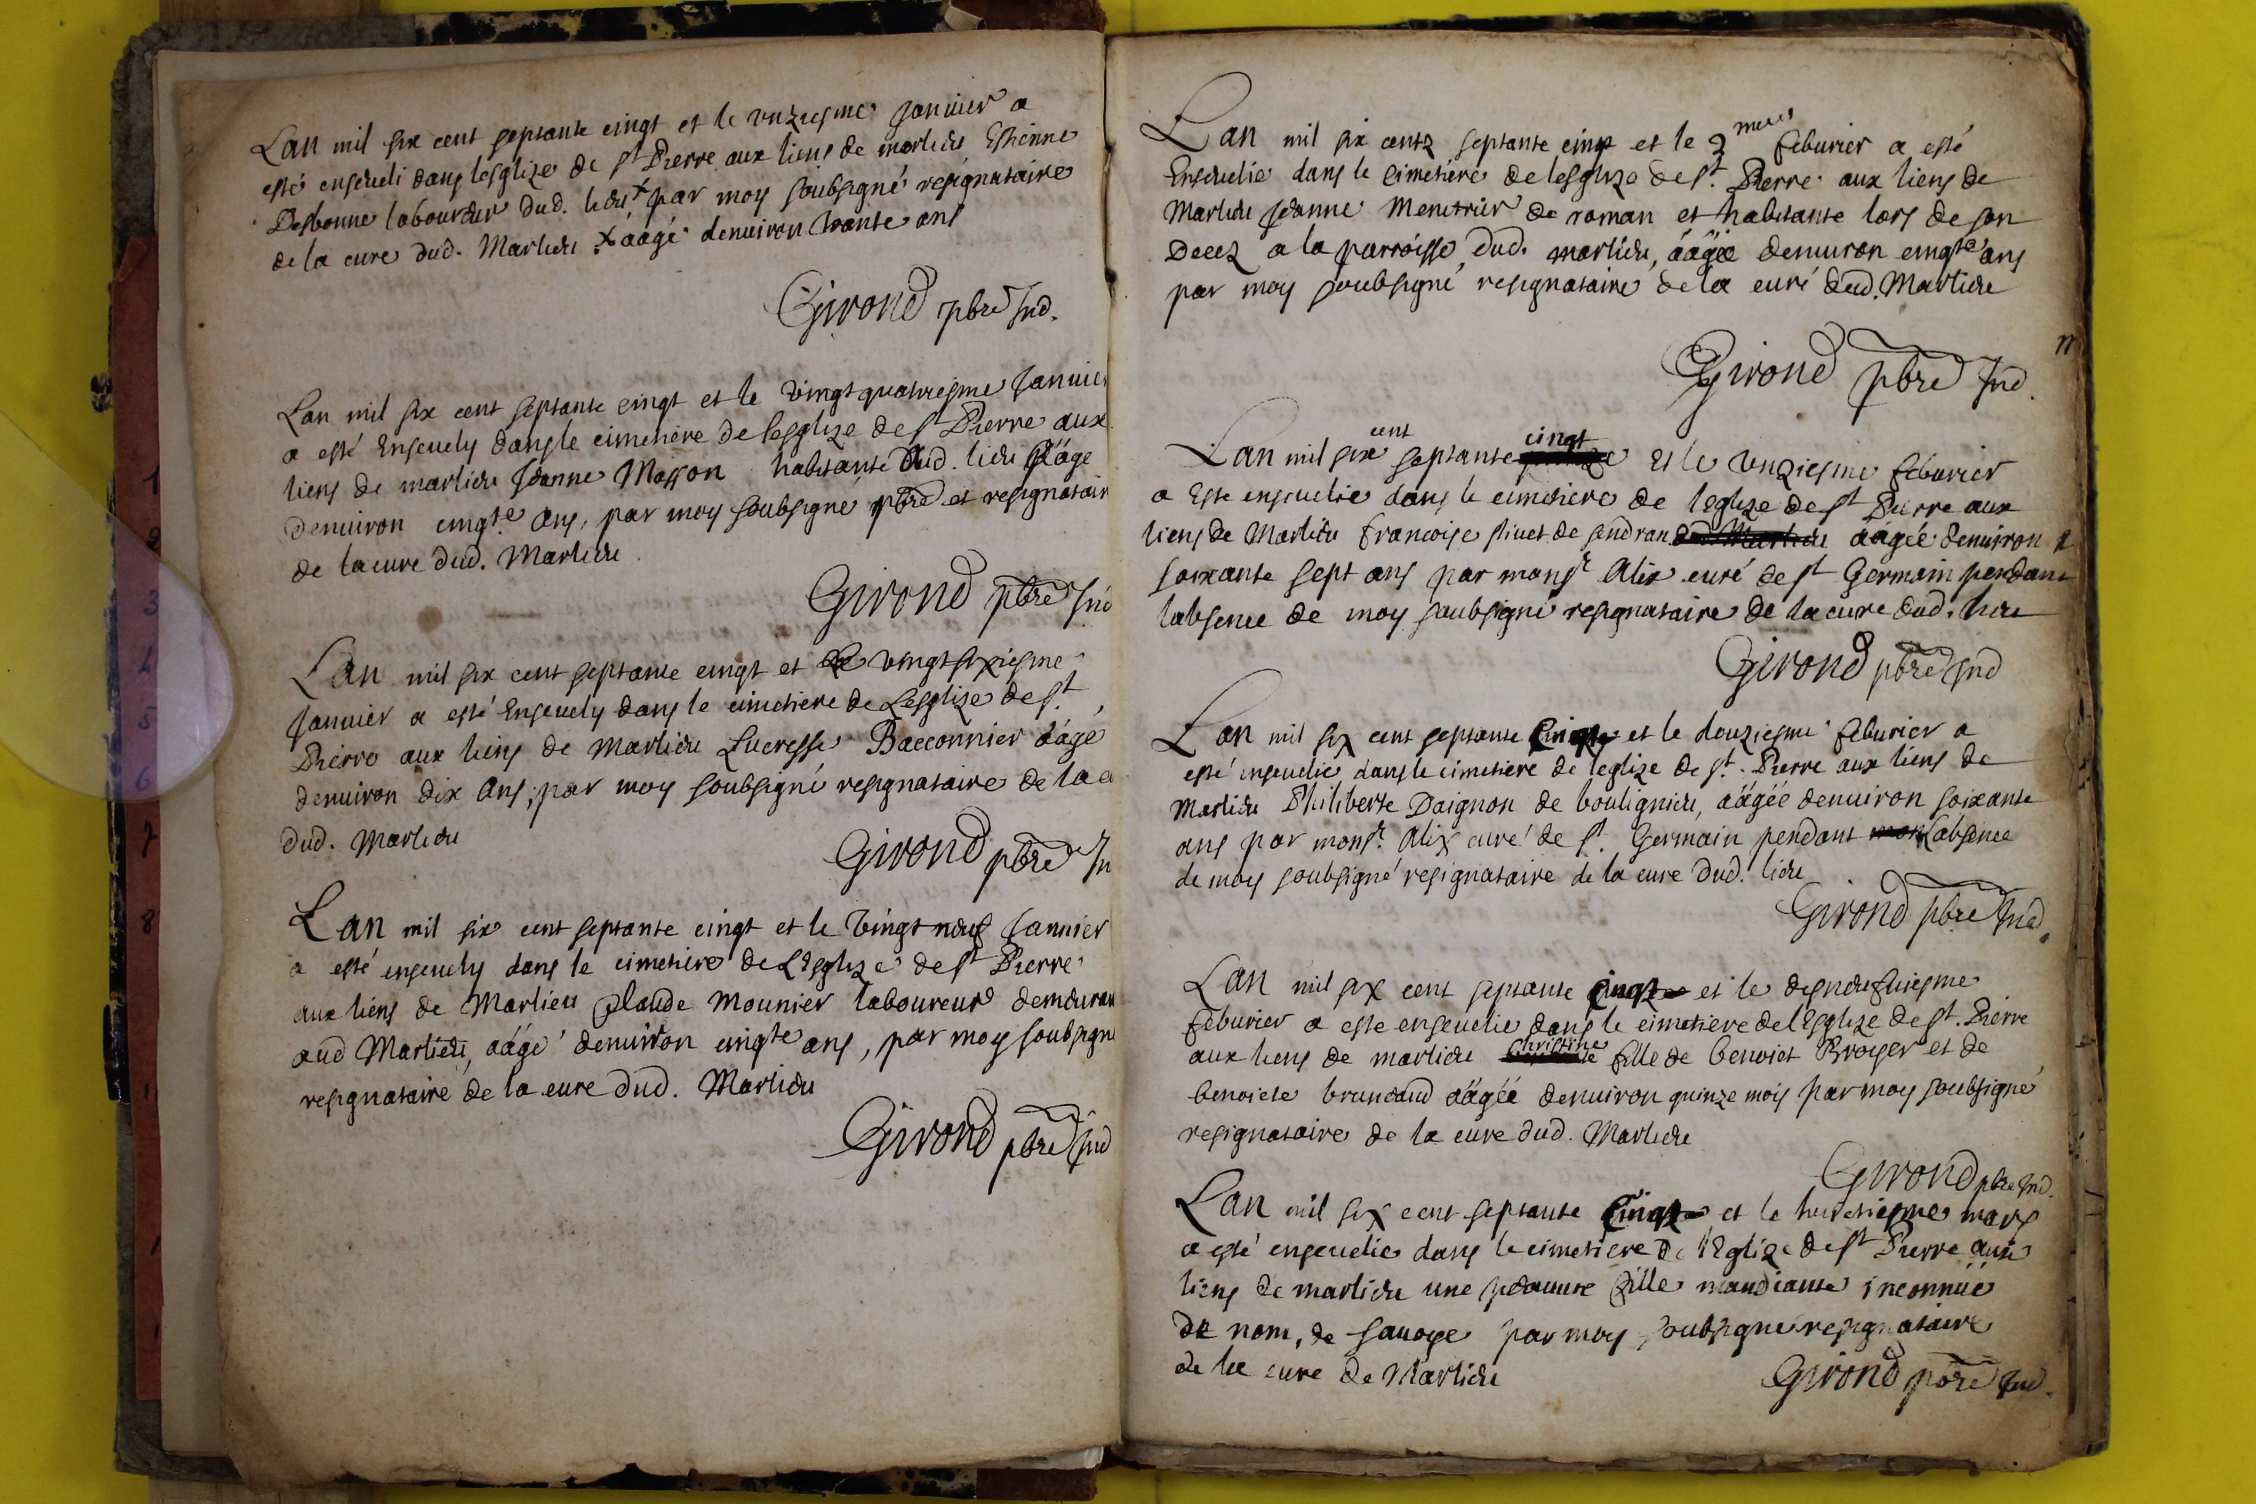 Lan mil six cent septante cinqt et le unziesme Januier a
esté enseueli dans lesglize de st Pierre aux liens de marlieu Estienne
Desbonne laboureur dud. lieu x par moy soubsigné resignataire
de la cure dud. Marlieu x ââgé denuiron trante ans
Girond pbre Ind.
Lan mil six cent septante cinqt et le vingtquatriesme Januier
a esté Enseuely dans le cimetiere de lesglize de st Pierre aux
liens de marlieu Jeanne Masson habitante dud. lieu ââgé
denuiron cinqte ans, par moy soubsigné pbre et resignatair
de la cure dud. Marlieu
Girond pbre Ind
Lan mil six cent septante cinqt et le vingtsixiesme
Januier a esté Enseuely dans le cimetiere de Lesglize de st
Pierre aux liens de Marlieu Lucresse Bacconnier ââgé
denuiron dix Ans, par moy soubsigné resignataire de la c
dud. Marlieu
Girond pbre In
Lan mil six cent septante cinqt et le vingt neuf Januier
a esté enseuely dans le cimetiere de LEsglize de st Pierre
aux liens de Marlieu Claude Mounier laboureur demeuran
aud Marlieu, ââgé denuiron cinqte ans, par moy soubsigne
resignataire de la cure dud. Marlieu
Girond pbre Ind
Lan mil six centz septante cinqt et le 2 me feburier a esté
Enseuelie dans le Cimetiere de lesglize de st. Pierre aux liens de
Marlieu Jeanne Menetrier de roman et habitante lors de son
Decez a la parroisse dud. marlieu, ââgée denuiron cinqte ans
par moy soubsigné resignataire de la curé dud. Marlieu
11
Girond pbre Ind.
Lan mil six cent septante cinqt Et le unziesme feburier
a Este enseuelie dans le cimetiere de lEglize de st Pierre aux
liens de Marlieu francoise siuet de sendran dud. Marlieu ââgée denuiron
soixante sept ans par monsr Alix curé de st Germain pendant
labsence de moy soubsigné resignataire de la cure dud. lieu
Girond pbre Ind
Lan mil six cent septante Cinqt et le douziesme feburier a
esté enseuelie dans le cimetiere de leglize de st. Pierre aux liens de
Marlieu Philiberte Daignon de boulignieu, ââgée denuiron soixante
ans par monsr. Alix curé de st. Germain pendant mon Labsence
de moy soubsigné resignataire de la cure dud. lieu
Girond pbre Ind.
Lan mil six cent septante cinqt et le desneufuiesme
feburier a este enseuelie dans le cimetiere de lEsglize de st. Pierre
aux liens de marlieu Christine fille de benoict Broyer et de
benoicte brundaud ââgéé denuiron quinze mois par moy soubsigné
resignataire de la cure dud. Marlieu
Girond pbre Ind.
Lan mil six cent septante Cinqt et le huictiesme mars
a esté enseuelie dans le cimetiere de lEglize de st Pierre aux
liens de marlieu une peauure fille mandiante inconnüe
de nom, de sauoye par moy soubsigné resignataire
de la cure de Marlieu
Girond pbre Ind.